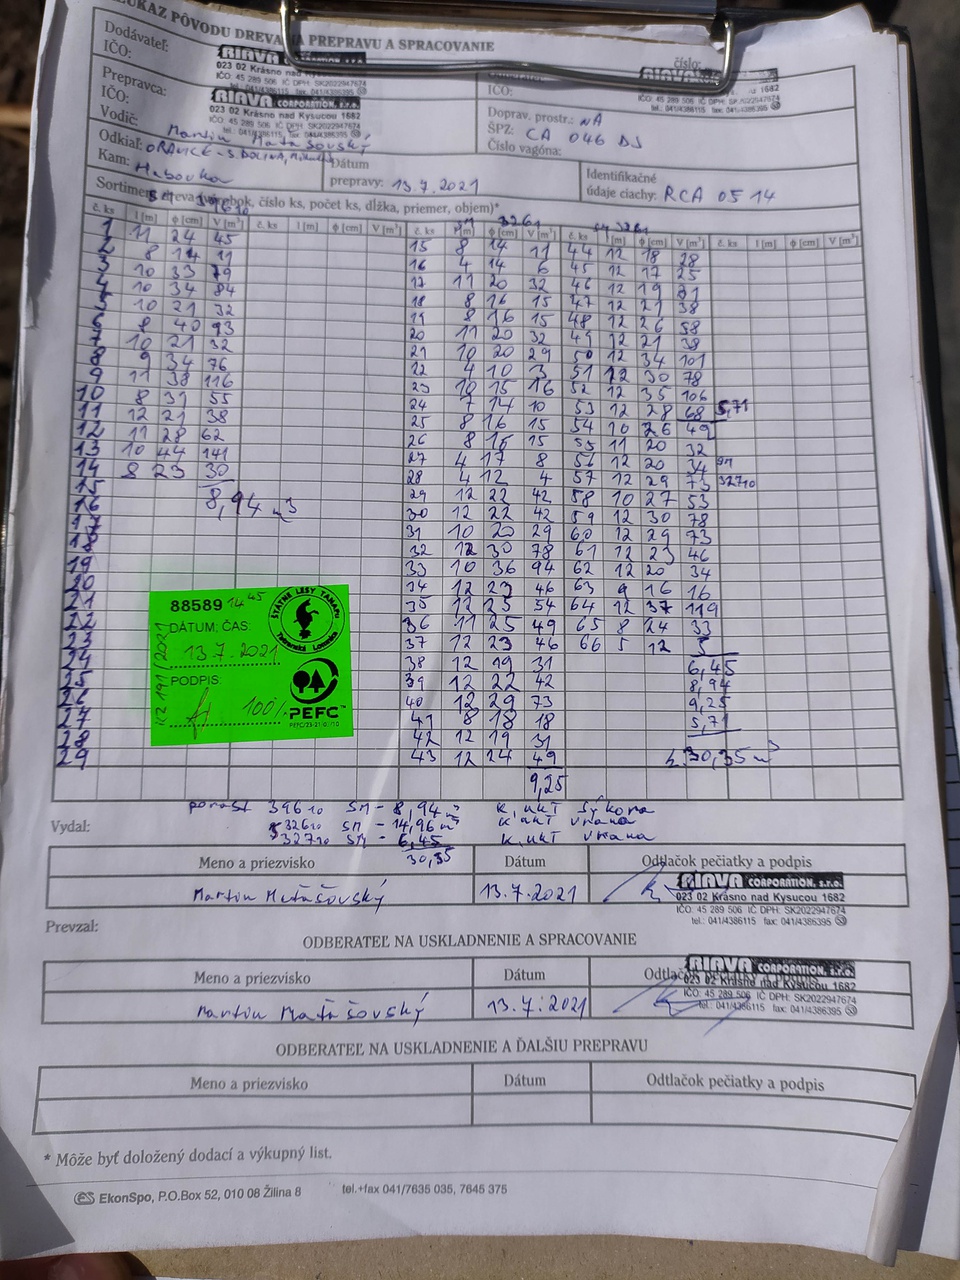 ÚKAZ PÔVODU DREVA NA PREPRAVU A SPRACOVANIE
Dodávateľ:
IČO:
RIAVA CORPORATION, s.r.o.
023 02 Krásno nad Kysucou 1682
IČO: 45 289 506 IČ DPH: SK2022947674
číslo:
IČO:
Prepravca:
IČO:
RIAVA CORPORATION, s.r.o.
023 02 Krásno nad Kysucou 1682
IČO: 45 289 506 IČ DPH: SK2022947674
tel.: 041/4386115 fax: 041/4386395
Vodič: Martin Matášovský
Doprav. prostr.: NA
ŠPZ: CA 046 DJ
Číslo vagóna:
Odkiaľ: ORAVICE - S. DOLINA,
Kam: Habovka
Dátum
prepravy: 13.7.2021
Identifikačné
údaje ciachy: RCA 05 14
Sortiment dreva (výrobok, číslo ks, počet ks, dĺžka, priemer, objem)*
č. ks l [m] ϕ [cm] V [m³] č. ks l [m] ϕ [cm] V [m³] č. ks l [m] ϕ [cm] V [m³] č. ks l [m] ϕ [cm] V [m³] č. ks l [m] ϕ [cm] V [m³]
1 11 24 45
2 8 14 11
3 10 33 79
4 10 34 84
5 10 21 32
6 8 40 93
7 10 21 32
8 9 34 76
9 11 38 116
10 8 31 55
11 12 21 38
12 11 28 62
13 10 44 141
14 8 23 30
15
16 8,94 m3
17
18
19
20
21
22
23
24
25
26
27
28
29
15 8 14 11
16 4 14 6
17 11 20 32
18 8 16 15
19 8 16 15
20 11 20 32
21 10 20 29
22 4 10 3
23 10 15 16
24 7 14 10
25 8 16 15
26 8 16 15
27 4 17 8
28 4 12 4
29 12 22 42
30 12 22 42
31 10 20 29
32 12 30 78
33 10 36 94
34 12 23 46
35 12 25 54
36 11 25 49
37 12 23 46
38 12 19 31
39 12 22 42
40 12 29 73
41 8 18 18
42 12 19 31
43 12 24 49
9,25
44 12 18 28
45 12 17 25
46 12 19 31
47 12 21 38
48 12 26 58
49 12 21 38
50 12 34 101
51 12 30 78
52 12 35 106
53 12 28 68 5,71
54 10 26 49
55 11 20 32
56 12 20 34 SM
57 12 29 73 32710
58 10 27 53
59 12 30 78
60 12 29 73
61 12 23 46
62 12 20 34
63 9 16 16
64 12 37 119
65 8 24 33
66 5 12 5
6,45
8,94
9,25
5,71
30,35 m3
88589 14 45
DÁTUM, ČAS:
13.7.2021
PODPIS:
100%
KZ 191/2021
ŠTÁTNE LESY TANAPU
Tatranská Lomnica
PEFC™
porast 39610 SM - 8,94 m3 K. UKT Sýkora
32610 SM - 14,96 m3 K. UKT Vrana
32710 SM - 6,45 K. UKT Vrana
30,35
Vydal:
Meno a priezvisko Dátum Odtlačok pečiatky a podpis
Martin Matášovský 13.7.2021
RIAVA CORPORATION, s.r.o.
023 02 Krásno nad Kysucou 1682
IČO: 45 289 506 IČ DPH: SK2022947674
tel.: 041/4386115 fax: 041/4386395
Prevzal:
ODBERATEĽ NA USKLADNENIE A SPRACOVANIE
Meno a priezvisko Dátum Odtlačok pečiatky a podpis
Martin Matášovský 13.7.2021
RIAVA CORPORATION, s.r.o.
023 02 Krásno nad Kysucou 1682
IČO: 45 289 506 IČ DPH: SK2022947674
tel.: 041/4386115 fax: 041/4386395
ODBERATEĽ NA USKLADNENIE A ĎALŠIU PREPRAVU
Meno a priezvisko Dátum Odtlačok pečiatky a podpis
* Môže byť doložený dodací a výkupný list.
EkonSpo, P.O.Box 52, 010 08 Žilina 8 tel.+fax 041/7635 035, 7645 375